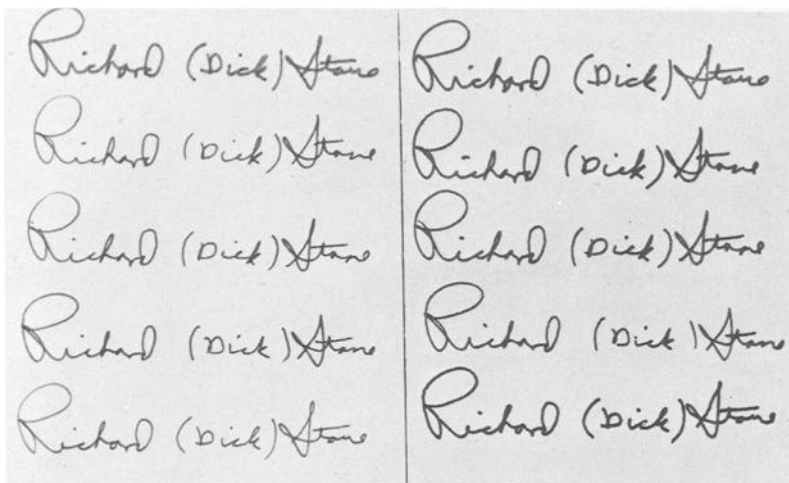 Richard (Dick) Stone
Richard (Dick) Stone
Richard (Dick) Stone
Richard (Dick) Stone
Richard (Dick) Stone
Richard (Dick) Stone
Richard (Dick) Stone
Richard (Dick) Stone
Richard (Dick) Stone
Richard (Dick) Stone